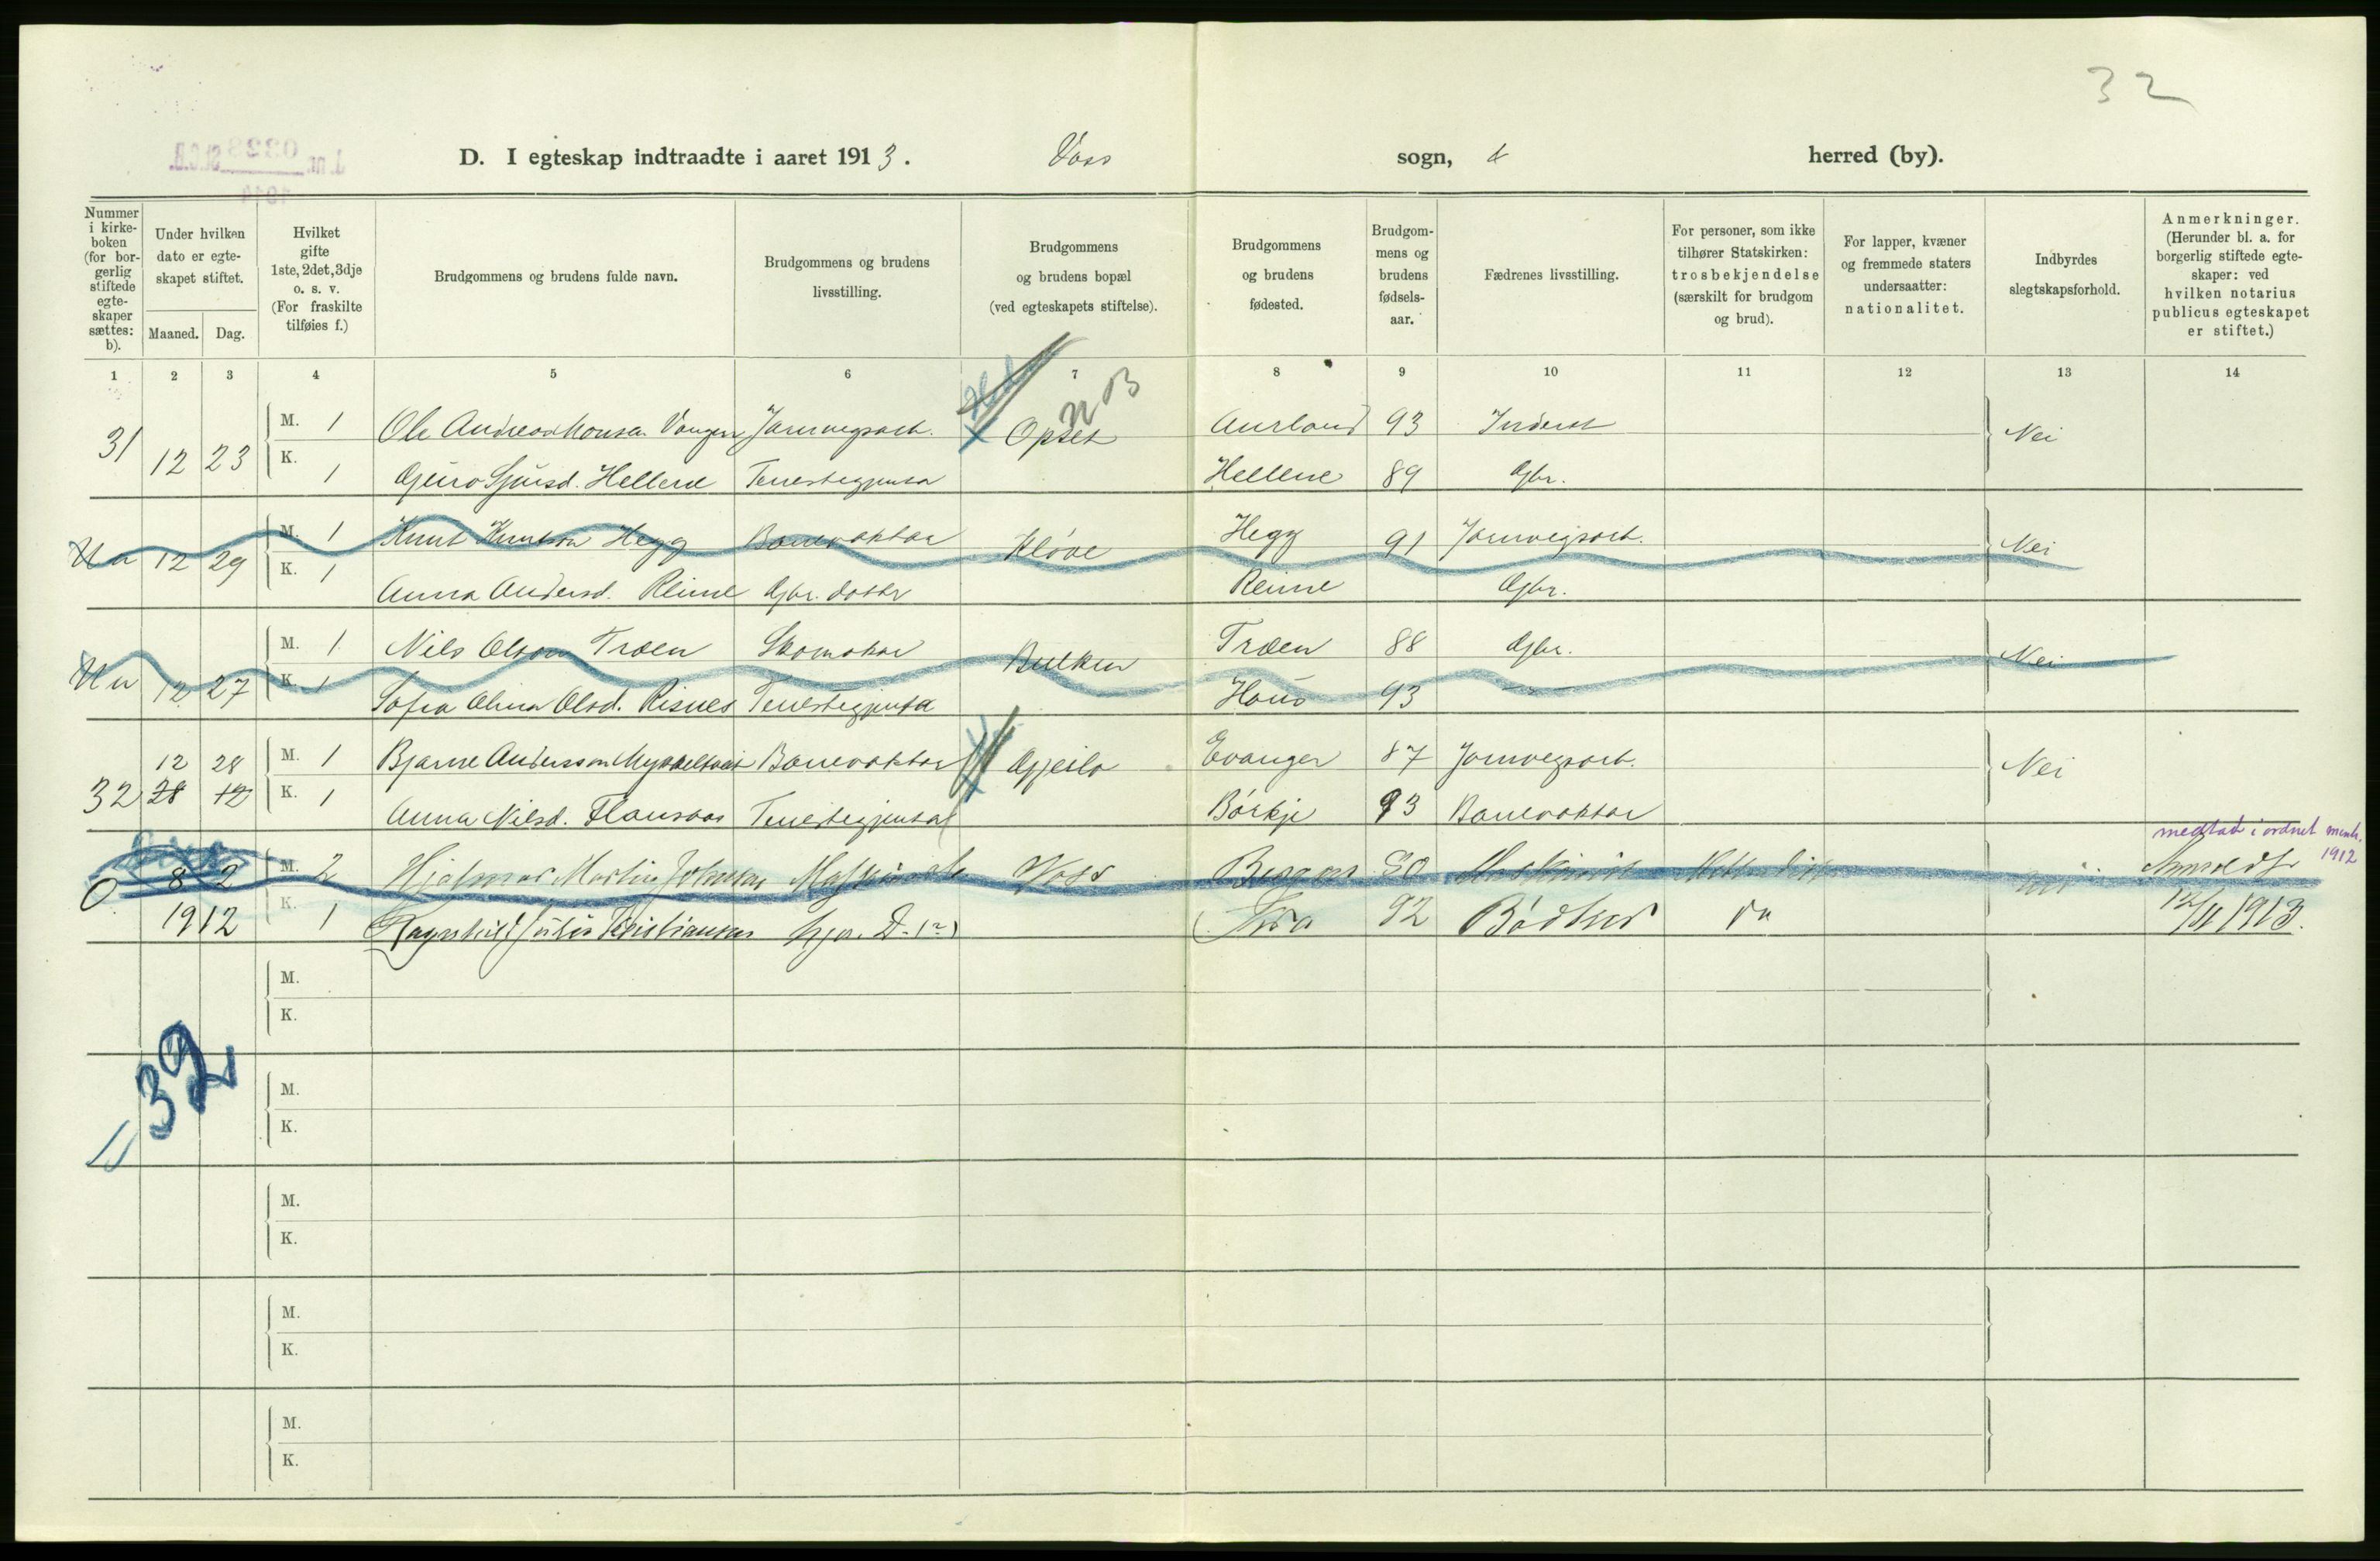 32
D. I egteskap indtraadte i aaret 1913. Voss sogn, herred (by).
Nummer i kirke-boken (for bor-gerlig stiftede egte-skaper sættes: b).
Under hvilken dato er egte-skapet stiftet.
Maaned. Dag.
Hvilket gifte 1ste, 2det, 3dje o. s. v. (For fraskilte tilføies f.)
Brudgommens og brudens fulde navn.
Brudgommens og brudens livsstilling.
Brudgommens og brudens bopæl (ved egteskapets stiftelse).
Brudgommens og brudens fødested.
Brudgom-mens og brudens fødsels-aar.
Fædrenes livsstilling.
For personer, som ikke tilhører Statskirken: trosbekjendelse (særskilt for brudgom og brud).
For lapper, kvæner og fremmede staters undersaatter: nationalitet.
Indbyrdes slegtskapsforhold.
Anmerkninger. (Herunder bl. a. for borgerlig stiftede egte-skaper: ved hvilken notarius publicus egteskapet er stiftet.)
1 2 3 4 5 6 7 8 9 10 11 12 13 14
31 12 23 M. 1 Ole Andreas Monsen Vangen Jarnvegsarb. Opset Aurland 93 Inderst Nei
K. 1 Gjuro Sjursd. Hellene Tenestegjenta Hellene 89 Gbr.
12 29 M. 1 Knut Knutson Hegg Banevaktar Kløve Hegg 91 Jarnvegsarb. Nei
K. 1 Anna Andersd. Reime Gbr. dotter Reime Gbr.
12 27 M. 1 Nils Olson Træen Skomakar Bulken Træen 88 Gbr. Nei
K. 1 Sofia Olina Olsd. Risnes Tenestegjenta Haus 93
12 28 M. 1 Bjarne Andersson Banevaktar Gjeilo Evanger 87 Jarnvegsarb. Nei
32 28 12 K. 1 Anna Nilsd. Tenestegjenta Børkje 93 Banevaktar
medtat i ordnet 1912
0 8 2 M. 2 Hjalmar Martin Johnsen Voss Bergen 80
1912 K. 1 92 Bødker 1913.
M.
K.
32
M.
K.
M.
K.
M.
K.
M.
K.